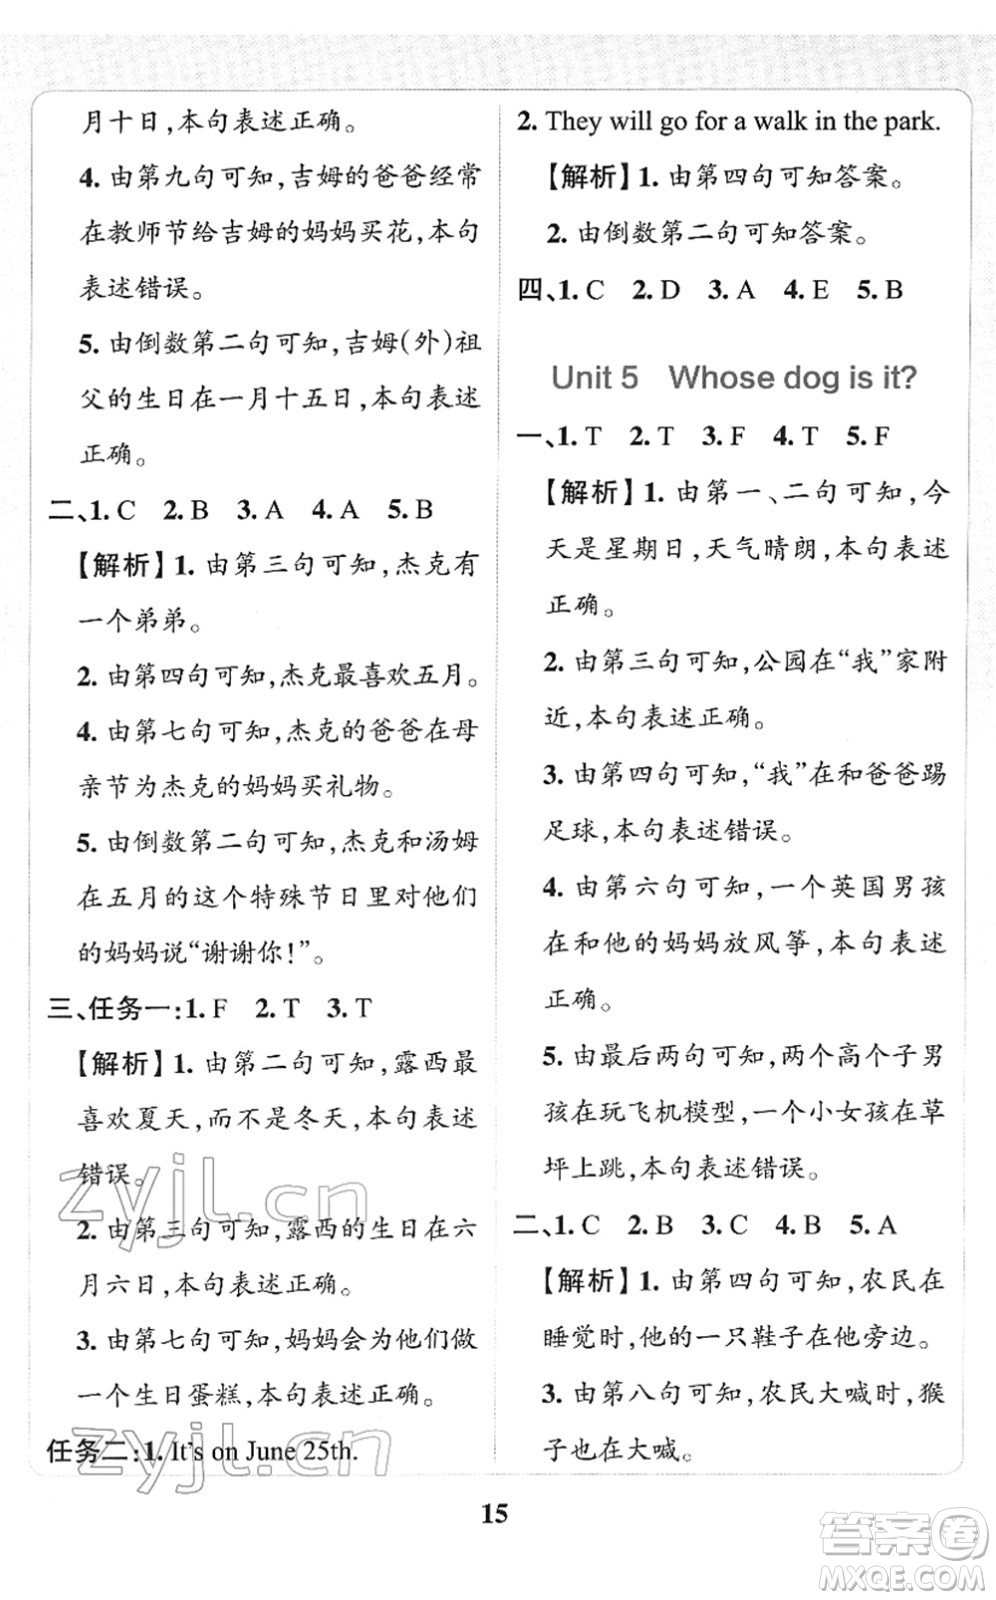 月十日,本句表述正确。
4. 由第九句可知,吉姆的爸爸经常
在教师节给吉姆的妈妈买花,本句
表述错误。
5. 由倒数第二句可知,吉姆(外)祖
父的生日在一月十五日,本句表述
正确。
二、1. C 2. B 3. A 4. A 5. B
【解析】1. 由第三句可知,杰克有
一个弟弟。
2. 由第四句可知,杰克最喜欢五月。
4. 由第七句可知,杰克的爸爸在母
亲节为杰克的妈妈买礼物。
5. 由倒数第二句可知,杰克和汤姆
在五月的这个特殊节日里对他们
的妈妈说“谢谢你!”。
三、任务一:1. F 2. T 3. T
【解析】1. 由第二句可知,露西最
喜欢夏天,而不是冬天,本句表述
错误。
2. 由第三句可知,露西的生日在六
月六日,本句表述正确。
3. 由第七句可知,妈妈会为他们做
一个生日蛋糕,本句表述正确。
任务二:1. It's on June 25th.
2. They will go for a walk in the park.
【解析】1. 由第四句可知答案。
2. 由倒数第二句可知答案。
四、1. C 2. D 3. A 4. E 5. B
Unit 5 Whose dog is it?
一、1. T 2. T 3. F 4. T 5. F
【解析】1. 由第一、二句可知,今
天是星期日,天气晴朗,本句表述
正确。
2. 由第三句可知,公园在“我”家附
近,本句表述正确。
3. 由第四句可知,“我”在和爸爸踢
足球,本句表述错误。
4. 由第六句可知,一个英国男孩
在和他的妈妈放风筝,本句表述
正确。
5. 由最后两句可知,两个高个子男
孩在玩飞机模型,一个小女孩在草
坪上跳,本句表述错误。
二、1. C 2. B 3. C 4. B 5. A
【解析】1. 由第四句可知,农民在
睡觉时,他的一只鞋子在他旁边。
3. 由第八句可知,农民大喊时,猴
子也在大喊。
15
zyjl.cn
zyjl.cn
答案卷
MXQE.COM